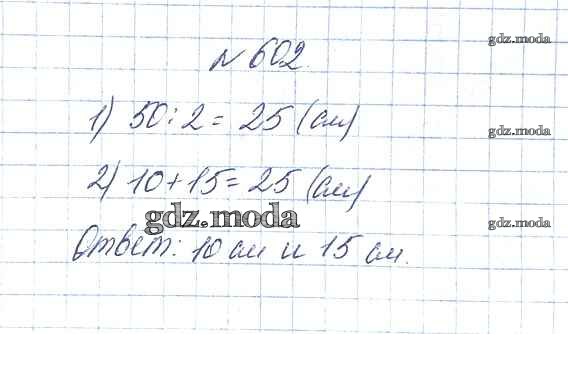 №602.
gdz.moda
1) 50:2=25 (см)
gdz.moda
2) 10+15=25 (см)
gdz.moda
gdz.moda
Ответ: 10 см и 15 см.